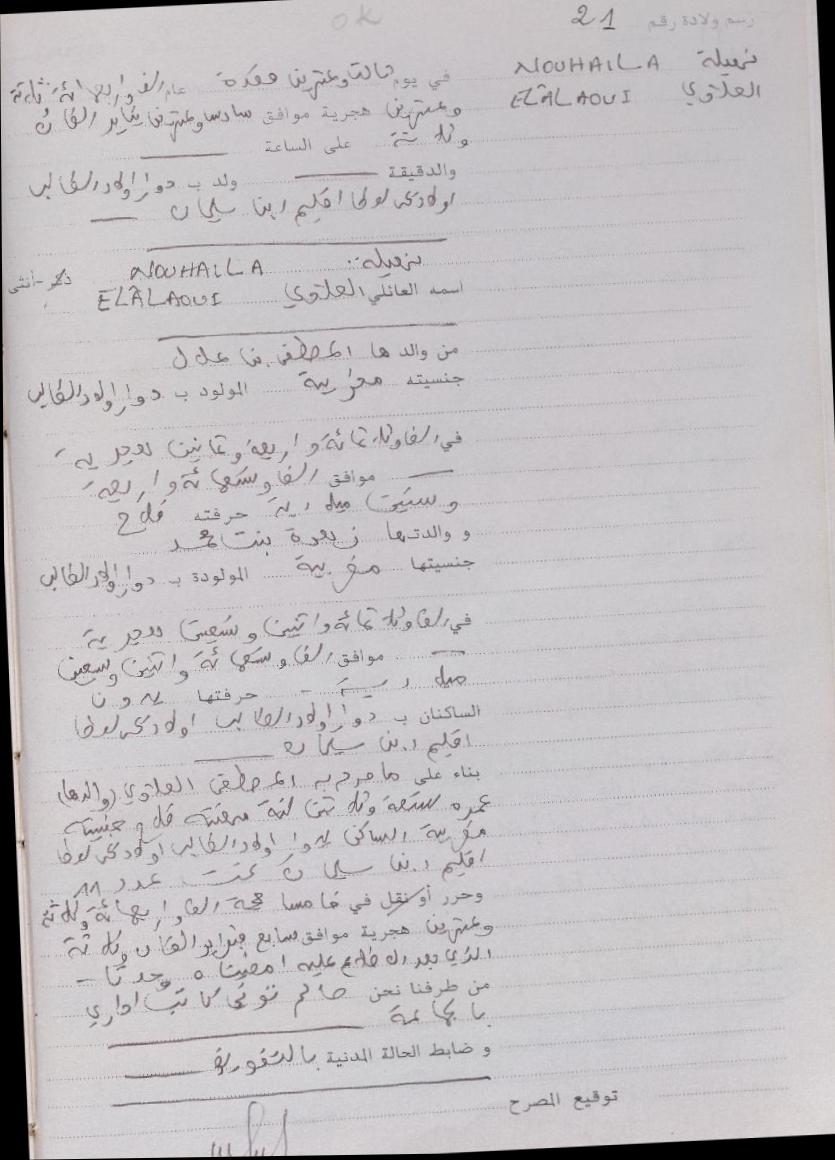 ok
رسم ولادة رقم 21
نهيلة NOUHAILA
العلوي ELALAOUI
في يوم ثالث وعشرين قعدة عام الف واربعمائة وثلاثة
وعشرين هجرية موافق سادس وعشرين يناير الفان
وثلاثة على الساعة
والدقيقة ولد ب دوار اولاد الطالب
اولاد يحيى لوطا اقليم ابن سليمان
نهيلة NOUHAILA ذكر-أنثى
اسمه العائلي العلوي ELALAOUI
من والدها المصطفى بن علال
جنسيته مغربية المولود ب دوار اولاد الطالب
في الف وثلاثمائة واربعة وثمانين هجرية
موافق الف وتسعمائة واربعة
وستين ميلادية حرفته فلاح
و والدتها زهرة بنت محمد
جنسيتها مغربية المولودة ب دوار اولاد الطالب
في الف وثلاثمائة واثنين وتسعين هجرية
موافق الف وتسعمائة واثنين وسبعين
ميلادية حرفتها بدون
الساكنان ب دوار اولاد الطالب اولاد يحيى لوطا
اقليم ابن سليمان
بناء على ما صرح به المصطفى العلوي (والدها)
عمره تسعة وثلاثين سنة مهنته فلاح جنسيته
مغربية الساكن بدوار اولاد الطالب اولاد يحيى لوطا
اقليم ابن سليمان تحت عدد
وحرر أو نقل في خامس حجة الف واربعمائة وثلاثة
وعشرين هجرية موافق سابع فبراير الفان وثلاثة
الذي بعد الاطلاع عليه امضيناه وحدنا
من طرفنا نحن كاتب اداري
بالجماعة
و ضابط الحالة المدنية بالتفويض
توقيع المصرح